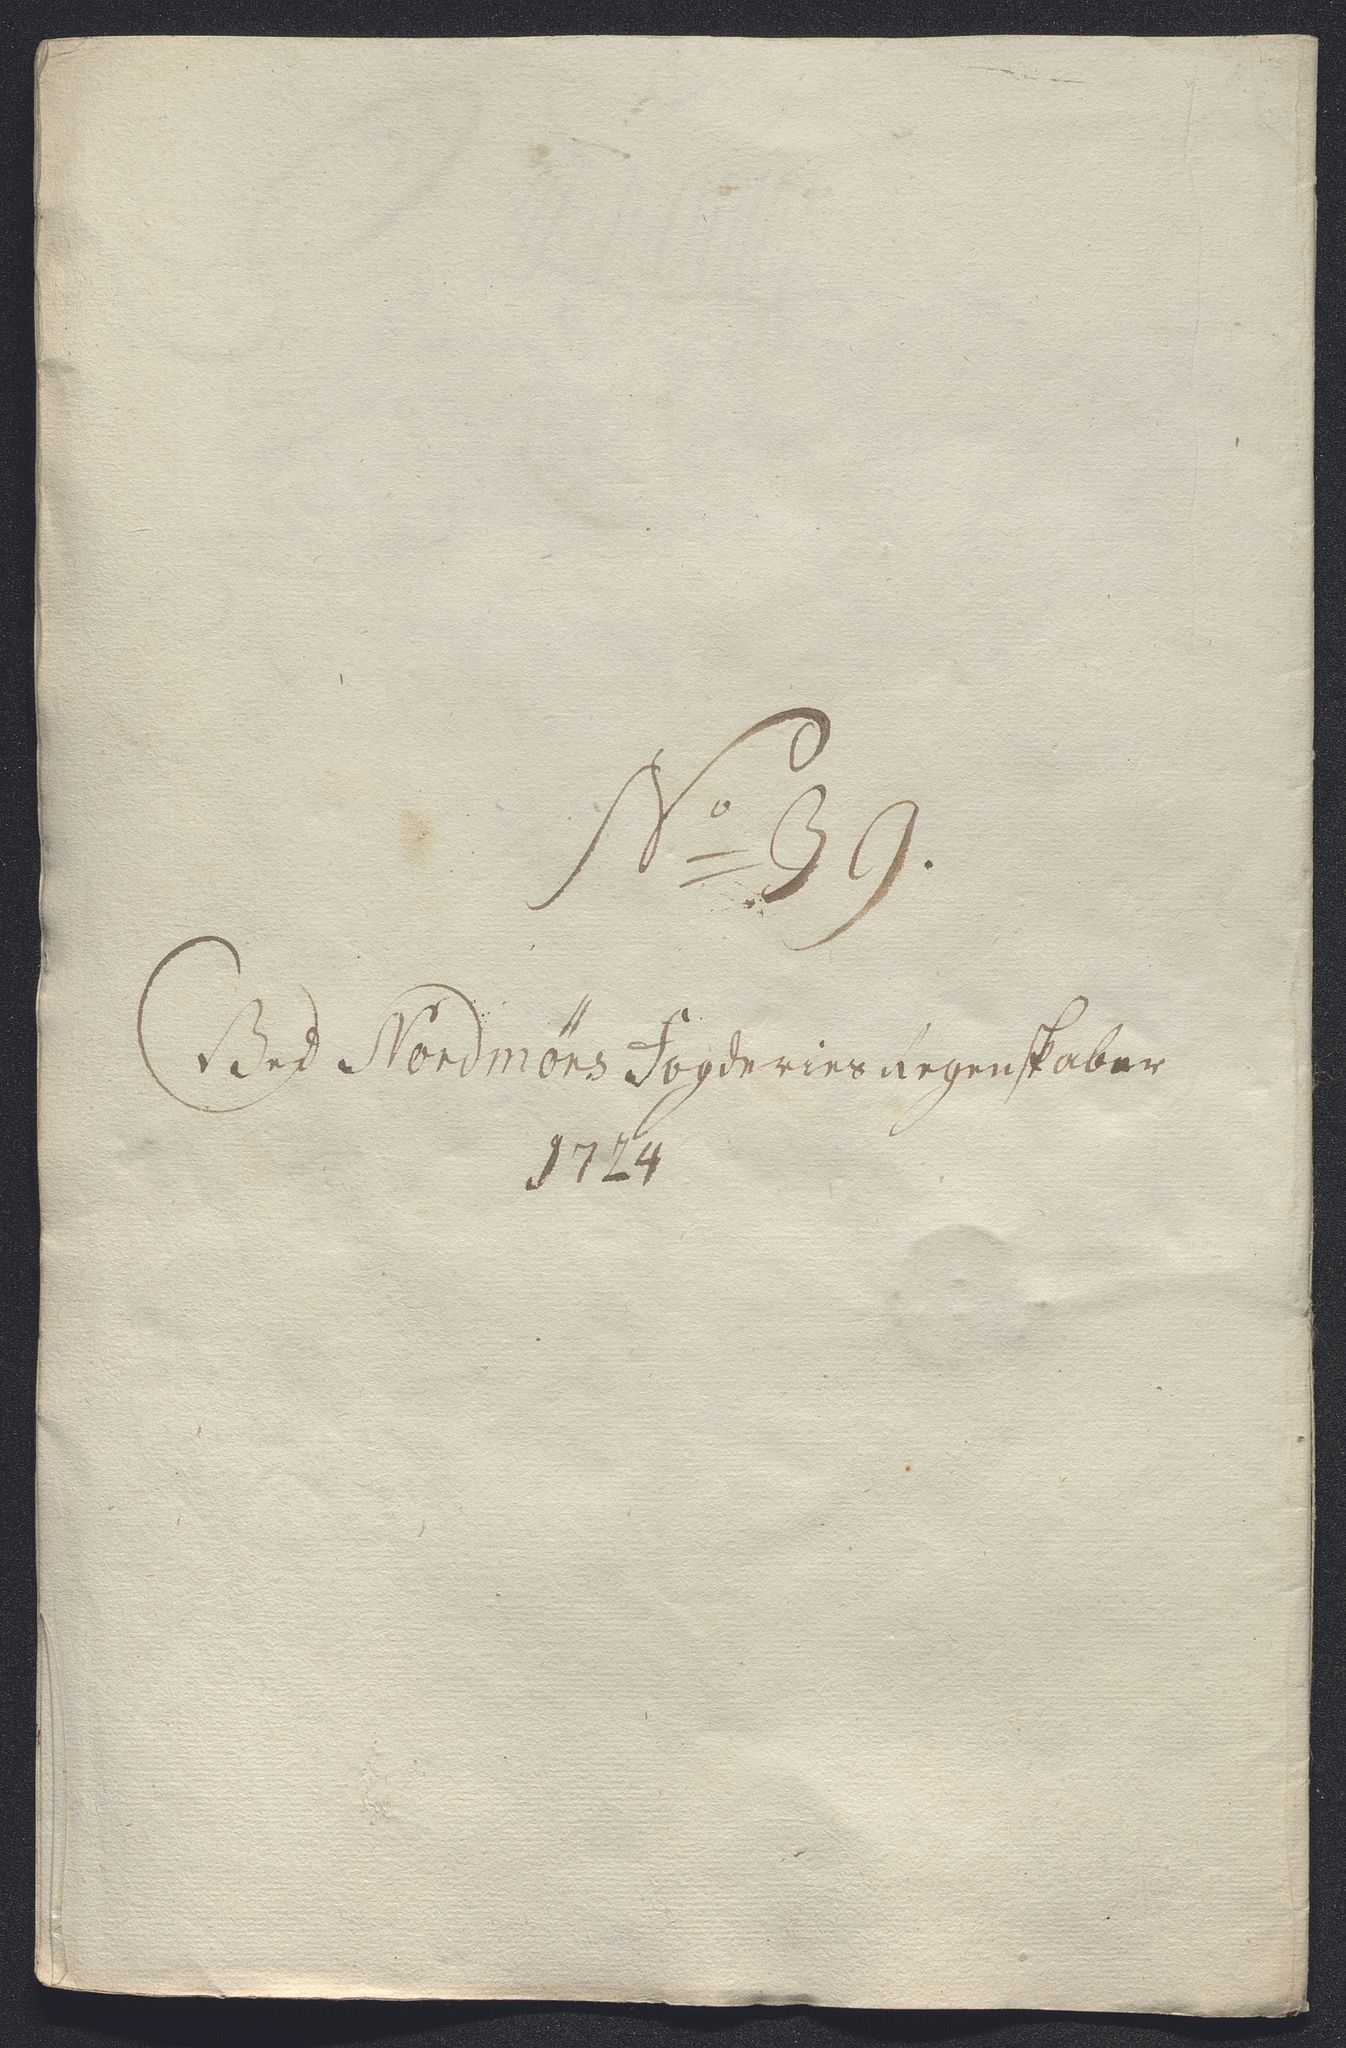 No 39.
Ved Nordmörs Fogderies Regenskaber
1724